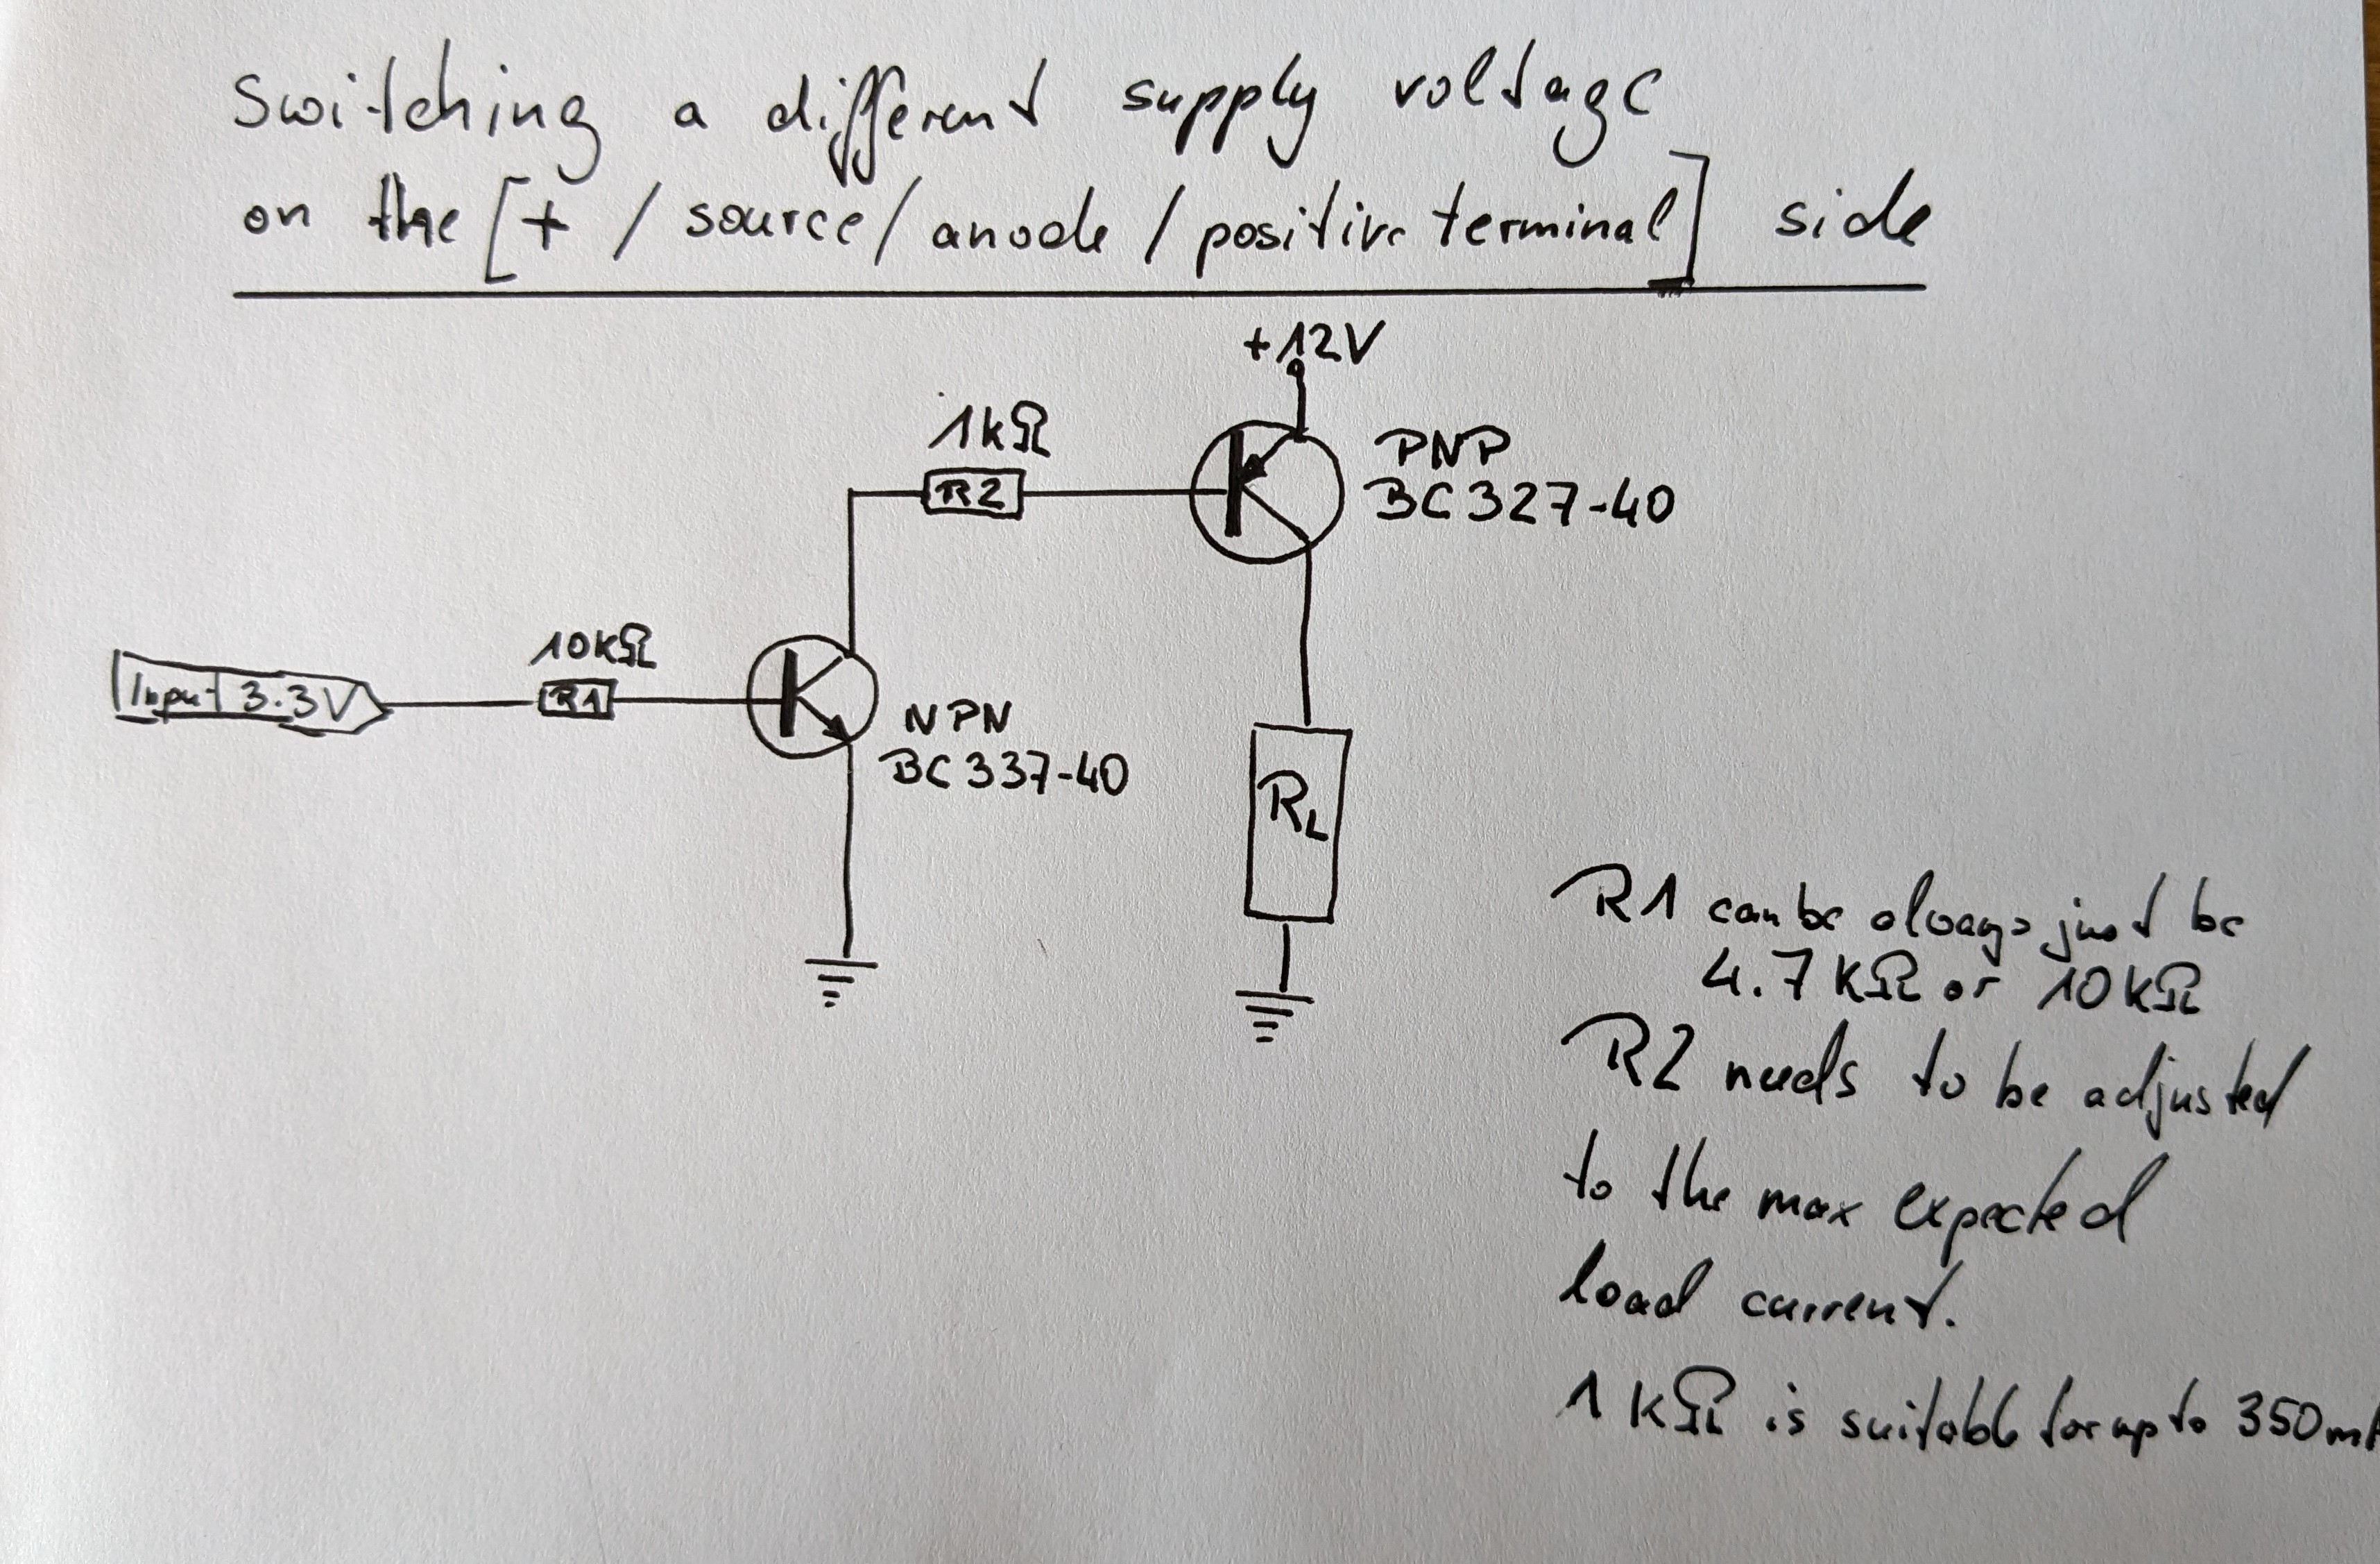 Switching a different supply voltage
on the [+ / source / anode / positive terminal] side
+12V
1kΩ
R2
PNP
BC327-40
10kΩ
Input 3.3V
R1
NPN
BC337-40
RL
R1 can be always just be
4.7kΩ or 10kΩ
R2 needs to be adjusted
to the max expected
load current.
1kΩ is suitable for up to 350mA